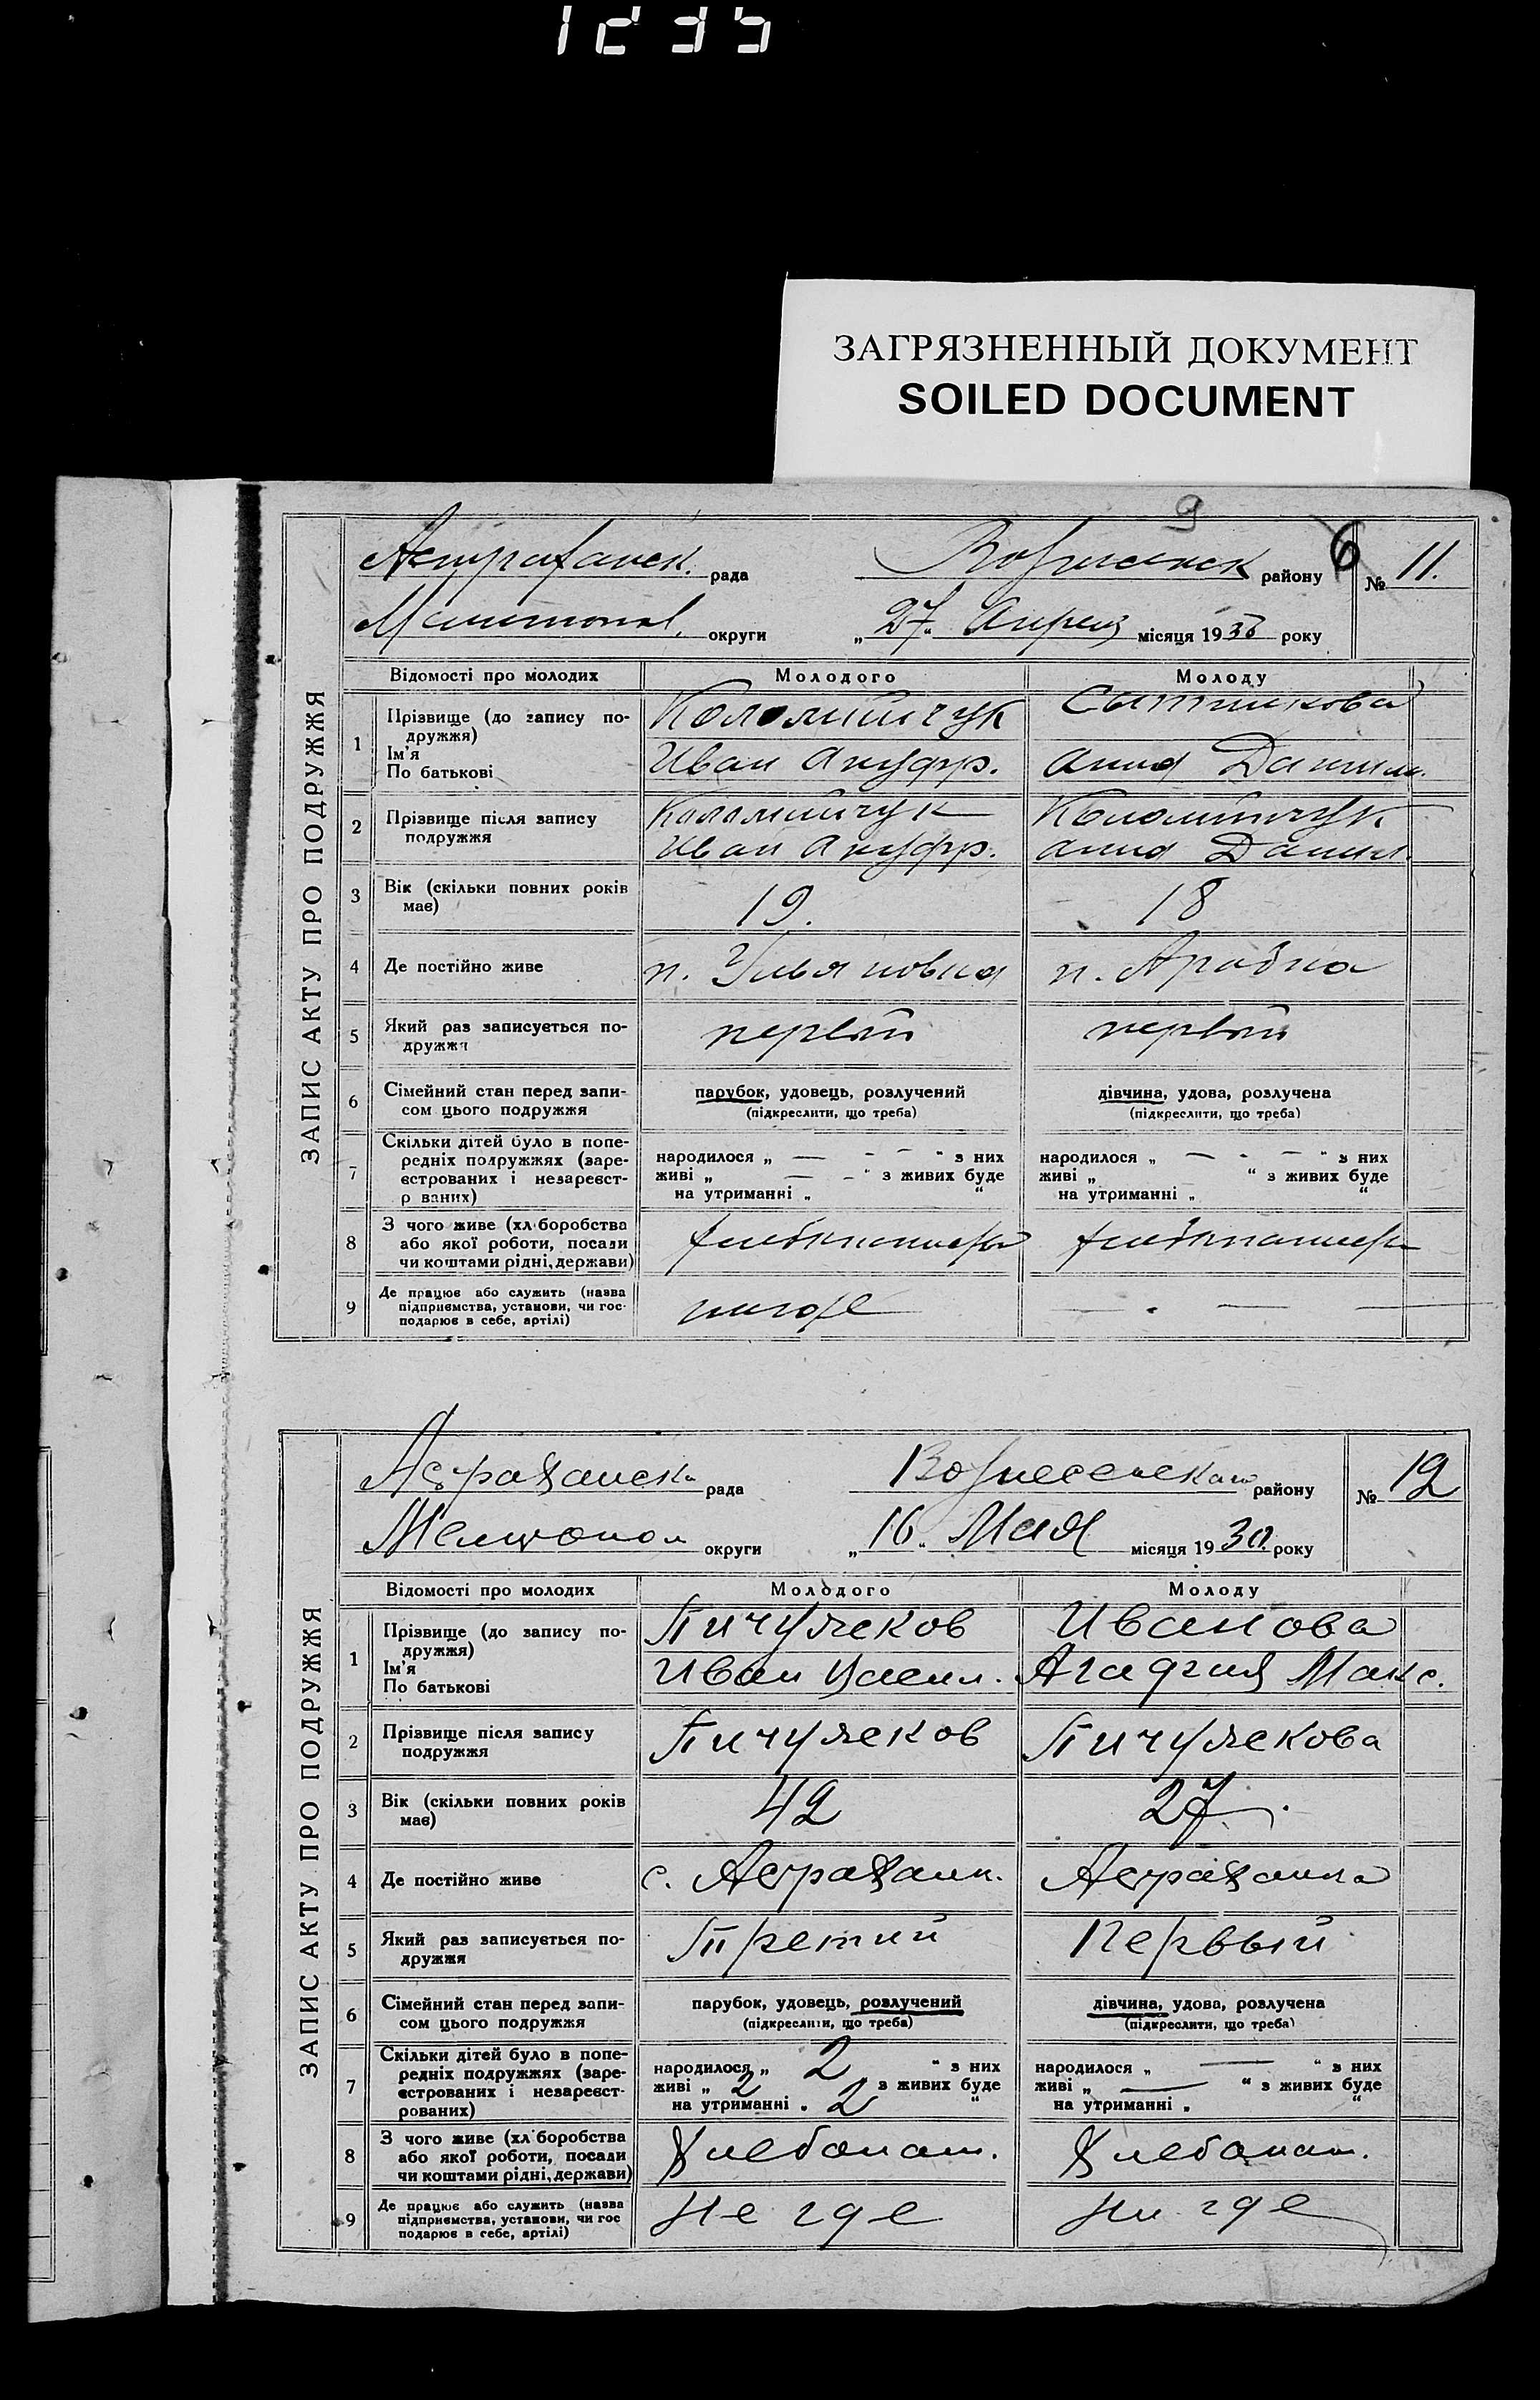 1235
ЗАГРЯЗНЕННЫЙ ДОКУМЕНТ
SOILED DOCUMENT
9
6
ЗАПИС АКТУ ПРО ПОДРУЖЖЯ
Астраханск. рада Вознесенск району № 11.
Мелитопол. округи „27„ Апреля місяця 1930 року
Відомості про молодих Молодого Молоду
1 Прізвище (до запису подружжя) Коломийчук Сытникова
Ім'я
По батькові Иван Ануфр. Анна Данил.
2 Прізвище після запису Коломийчук Коломийчук
подружжя Иван Ануфр. Анна Данил.
3 Вік (скільки повних років
має) 19. 18
4 Де постійно живе п. Ульяновка п.
5 Який раз записується по-
дружжя первый первый
6 Сімейний стан перед запи- парубок, удовець, розлучений дівчина, удова, розлучена
сом цього подружжя (підкреслити, що треба) (підкреслити, що треба)
7 Скільки дітей було в попе-
редніх подружжях (заре- народилося „ — - — “ з них народилося „ — - — “ з них
єстрованих і незареєст- живі „ — “ з живих буде живі „ “ з живих буде
р ваних) на утриманні „ “ на утриманні „ “
8 З чого живе (хл боробства
або якої роботи, посади
чи коштами рідні, держави)
9 Де працює або служить (назва
підприємства, установи, чи гос-
подарює в себе, артілі) нигде — . — —
ЗАПИС АКТУ ПРО ПОДРУЖЖЯ
Астраханск. рада Вознесенского району № 12
Мелитопол округи „16„ Мая місяця 1930. року
Відомості про молодих Молодого Молоду
1 Прізвище (до запису по- Пичужков Иванова
дружжя)
Ім'я
По батькові Иван Васил. Агафия Макс.
2 Прізвище після запису Пичужков Пичужкова
подружжя
3 Вік (скільки повних років 42 27.
має)
4 Де постійно живе с. Астрахан. Астраханка
5 Який раз записується по- Третий Первый
дружжя
6 Сімейний стан перед запи- парубок, удовець, розлучений дівчина, удова, розлучена
сом цього подружжя (підкреслити, що треба) (підкреслити, що треба)
7 Скільки дітей було в попе-
редніх подружжях (заре- народилося „ 2 “ з них народилося „ — “ з них
єстрованих і незареєст- живі „ 2 з живих буде живі „ — “ з живих буде
рованих) на утриманні „ 2 “ на утриманні „ “
8 З чого живе (хл боробства
або якої роботи, посади Хлебопаш. Хлебопаш.
чи коштами рідні, держави)
9 Де працює або служить (назва
підприємства, установи, чи гос Не где Ни где
подарює в себе, артілі)